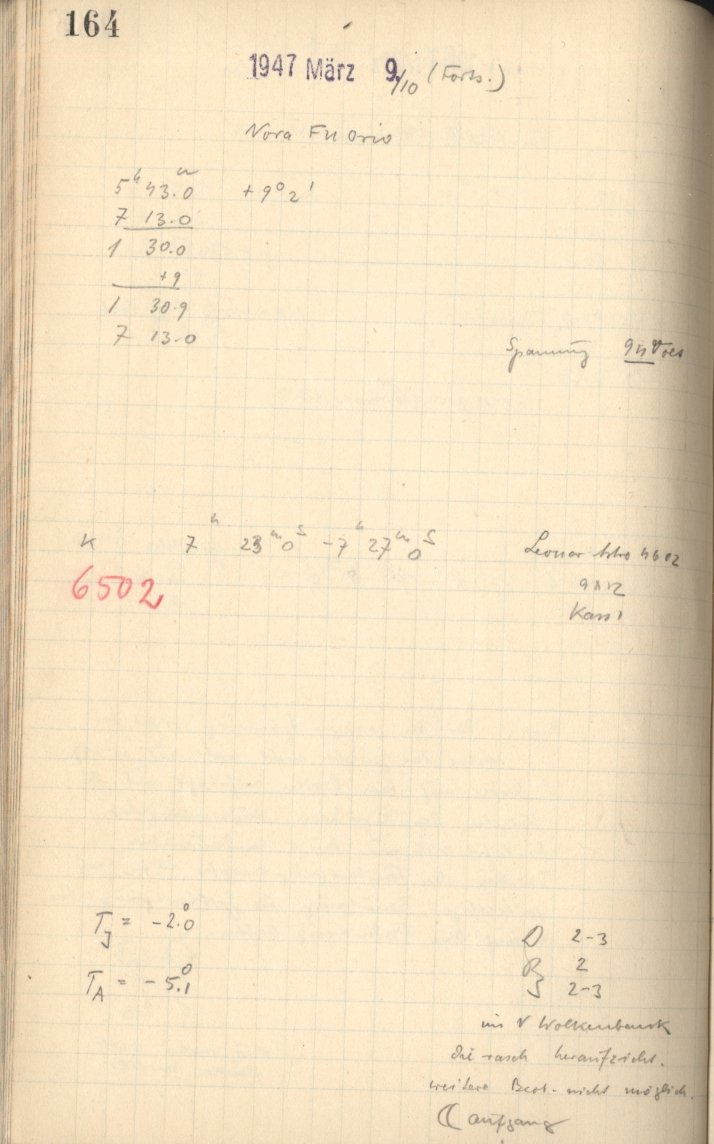 164
1947 März 9./10 (Forts.)
Nova FU Orio
5ʰ 43.0ᵐ +9° 2'
7 13.0
1 30.0
+9
1 30.9
7 13.0
Spannung Volt
K 7ʰ 23ᵐ 0ˢ - 7ʰ 27ᵐ 0ˢ
6502
Leonar
9x12
Kass 1
T_J = -2.°0
T_A = -5.°1
D 2-3
R 2
S 2-3
im V Wolkenbank
die rasch heraufzieht.
weitere Beob. nicht möglich.
☾ aufgang